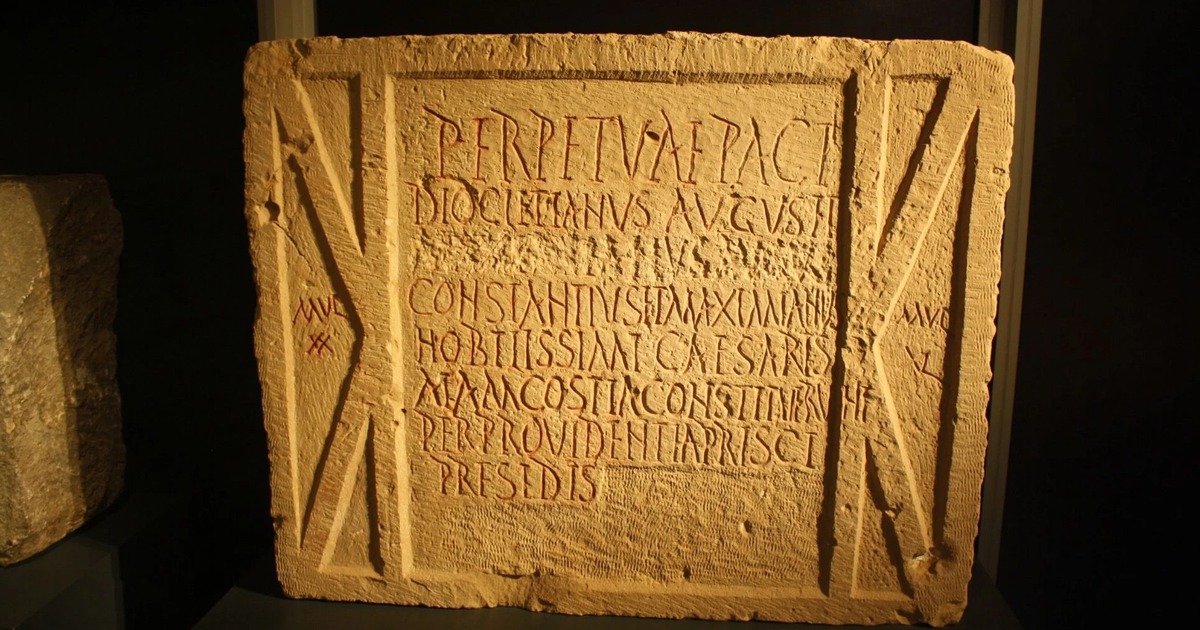 PERPETVAE PACI
DIOCLETIANVS AVGVSTI
CONSTANTIVS ET MAXIMIANVS
HOBILISSIMI CAESARIS
CONSTITVERVNT
PER PROVIDENTIA PRISCI
PRESEDIS
MVL
XX
MVL
VL